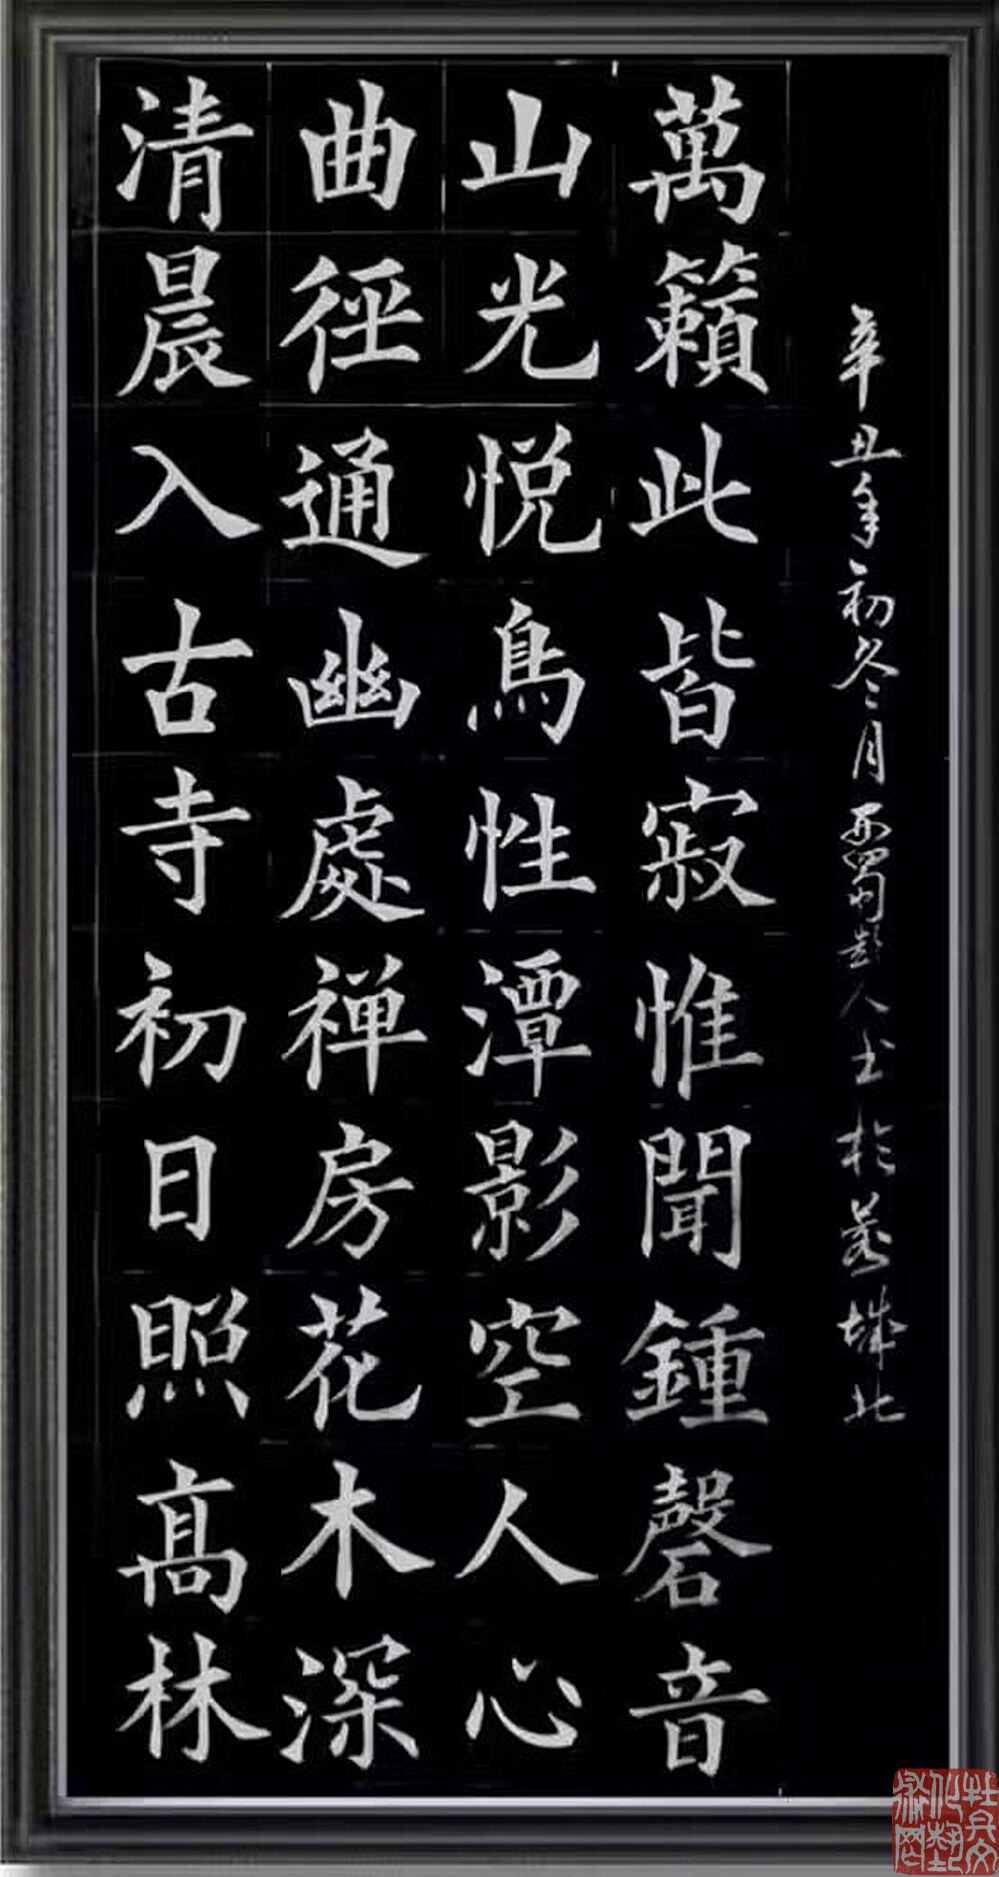 清晨入古寺初日照髙林
曲徑通幽處禅房花木深
山光悦鳥性潭影空人心
萬籟此皆寂惟聞鍾磬音
辛丑年初冬月西蜀彭人书於蓉城北